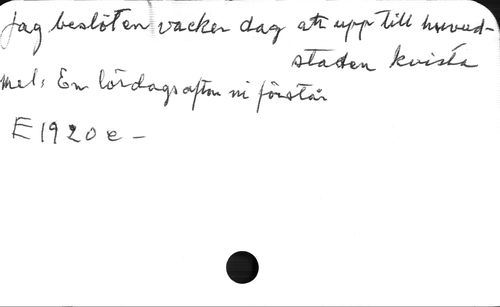 Jag beslöt en vacker dag att upp till huvud-
staden kvista
mel. En lördagsafton ni förstår
E 1920 e -